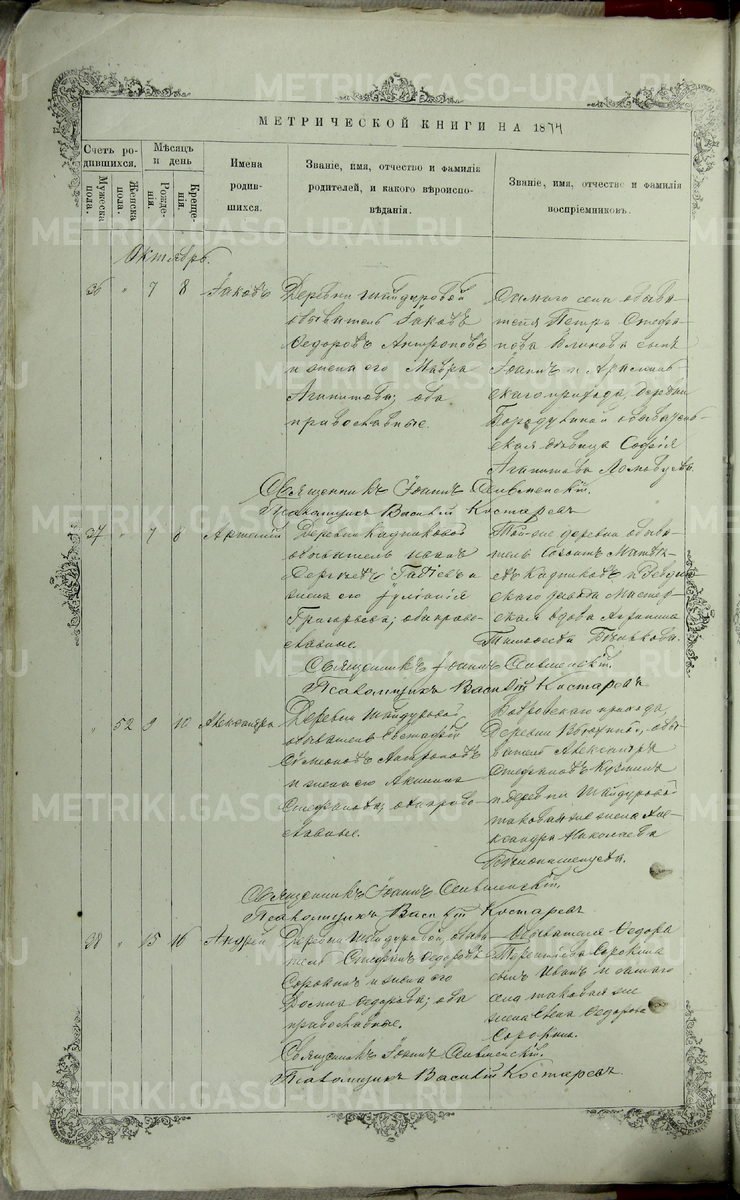 МЕТРИЧЕСКОЙ КНИГИ НА 1874
Счетъ ро-
дившихся.
Мужеска
пола.
Женска
пола.
Мѣсяцъ
и день
Рожде-
нія.
Креще-
нія.
Имена
родив-
шихся.
Званіе, имя, отчество и фамилія
родителей, и какого вѣроиспо-
вѣданія.
Званіе, имя, отчество и фамилія
воспріемниковъ.
Октябрь.
36 " 7 8 Іаковъ
Деревни Шайдуровой
обыватель Іаковъ
Ѳедоровъ Антроповъ
и жена его Мавра
Агапитова; оба
православные.
Самаго села обыва-
теля Петра Стефа-
нова Блинова сынъ
Іоаннъ и
прихода, деревни
Бородулиной обыватель-
ская дѣвица Софія
Агапитова
Священникъ Іоаннъ
Псаломщикъ Василій Костаревъ
37 " 7 8 Артемій
Деревни Кадниковой
обыватель
и
жена его Іуліанія
Григорьева; оба право-
славные.
Той-же деревни обыва-
тель Матвѣ-
евъ Кадниковъ и
скаго завода Мастер-
ская вдова
Тимофеева
Священникъ Іоаннъ
Псаломщикъ Василій Костаревъ
" 52 9 10 Александра
Деревни Шайдуровой
обыватель Евстафій
Симеоновъ Антроповъ
и жена его Акилина
Стефанова; оба право-
славные.
Бобровскаго прихода,
деревни обы-
ватель Александръ
Стефановъ Кузминъ
и деревни Шайдуровой
таковая же жена Але-
ксандра Николаева
Священникъ Іоаннъ
Псаломщикъ Василій Костаревъ
38 " 15 16 Андрей
Деревни Шайдуровой, обыва-
тель Стефанъ Ѳедоровъ
Сорокинъ и жена его
Ѳедорова; оба
православные.
Обывателя Ѳедора
Терентьева Сорокина
сынъ Иванъ и самаго
села таковая же
жена Ѳедорова
Сорокина.
Священникъ Іоаннъ
Псаломщикъ Василій Костаревъ
METRIKI.GASO-URAL.RU